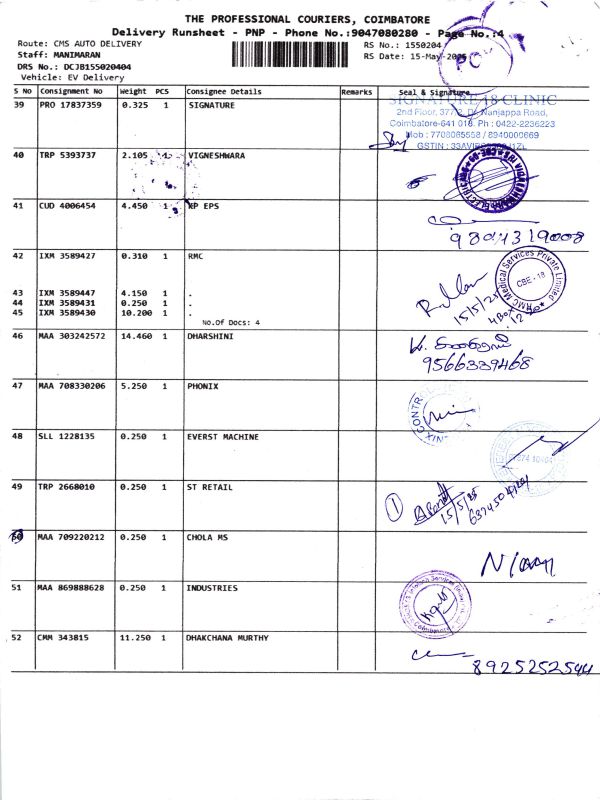 THE PROFESSIONAL COURIERS, COIMBATORE
Delivery Runsheet - PNP - Phone No.:9047080280 - Page No.:4
Route: CMS AUTO DELIVERY
RS No.: 1550204
Staff: MANIMARAN
RS Date: 15-May-2025
DRS No.: DCJB155020404
Vehicle: EV Delivery
S NO Consignment No Weight PCS Consignee Details Remarks Seal & Signature
39 PRO 17837359 0.325 1 SIGNATURE
SIGNATURE 18 CLINIC
2nd Floor, 377/2, Dr. Nanjappa Road,
Coimbatore-641 018. Ph : 0422-2236223
Mob : 7708065558 / 8940000669
GSTIN : 33AVI
40 TRP 5393737 2.105 1 VIGNESHWARA
41 CUD 4006454 4.450 1 KP EPS
42 IXM 3589427 0.310 1 RMC
RMC Medical Services Private Limited
CBE - 18
15/5/25
4 Box
43 IXM 3589447 4.150 1 .
44 IXM 3589431 0.250 1 .
45 IXM 3589430 10.200 1 .
No.Of Docs: 4
46 MAA 303242572 14.460 1 DHARSHINI
9566339468
47 MAA 708330206 5.250 1 PHONIX
48 SLL 1228135 0.250 1 EVERST MACHINE
49 TRP 2668010 0.250 1 ST RETAIL
1
15/5/25
50 MAA 709220212 0.250 1 CHOLA MS
51 MAA 869888628 0.250 1 INDUSTRIES
52 CMM 343815 11.250 1 DHAKCHANA MURTHY
8925252544